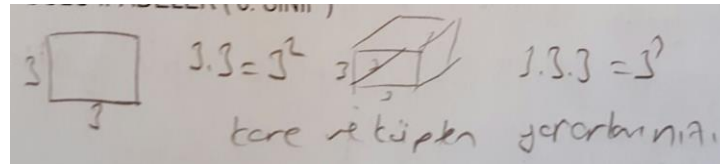 3 3.3=3² 3 3.3.3=3³
3 3
kare ve küpten yararlanınız.